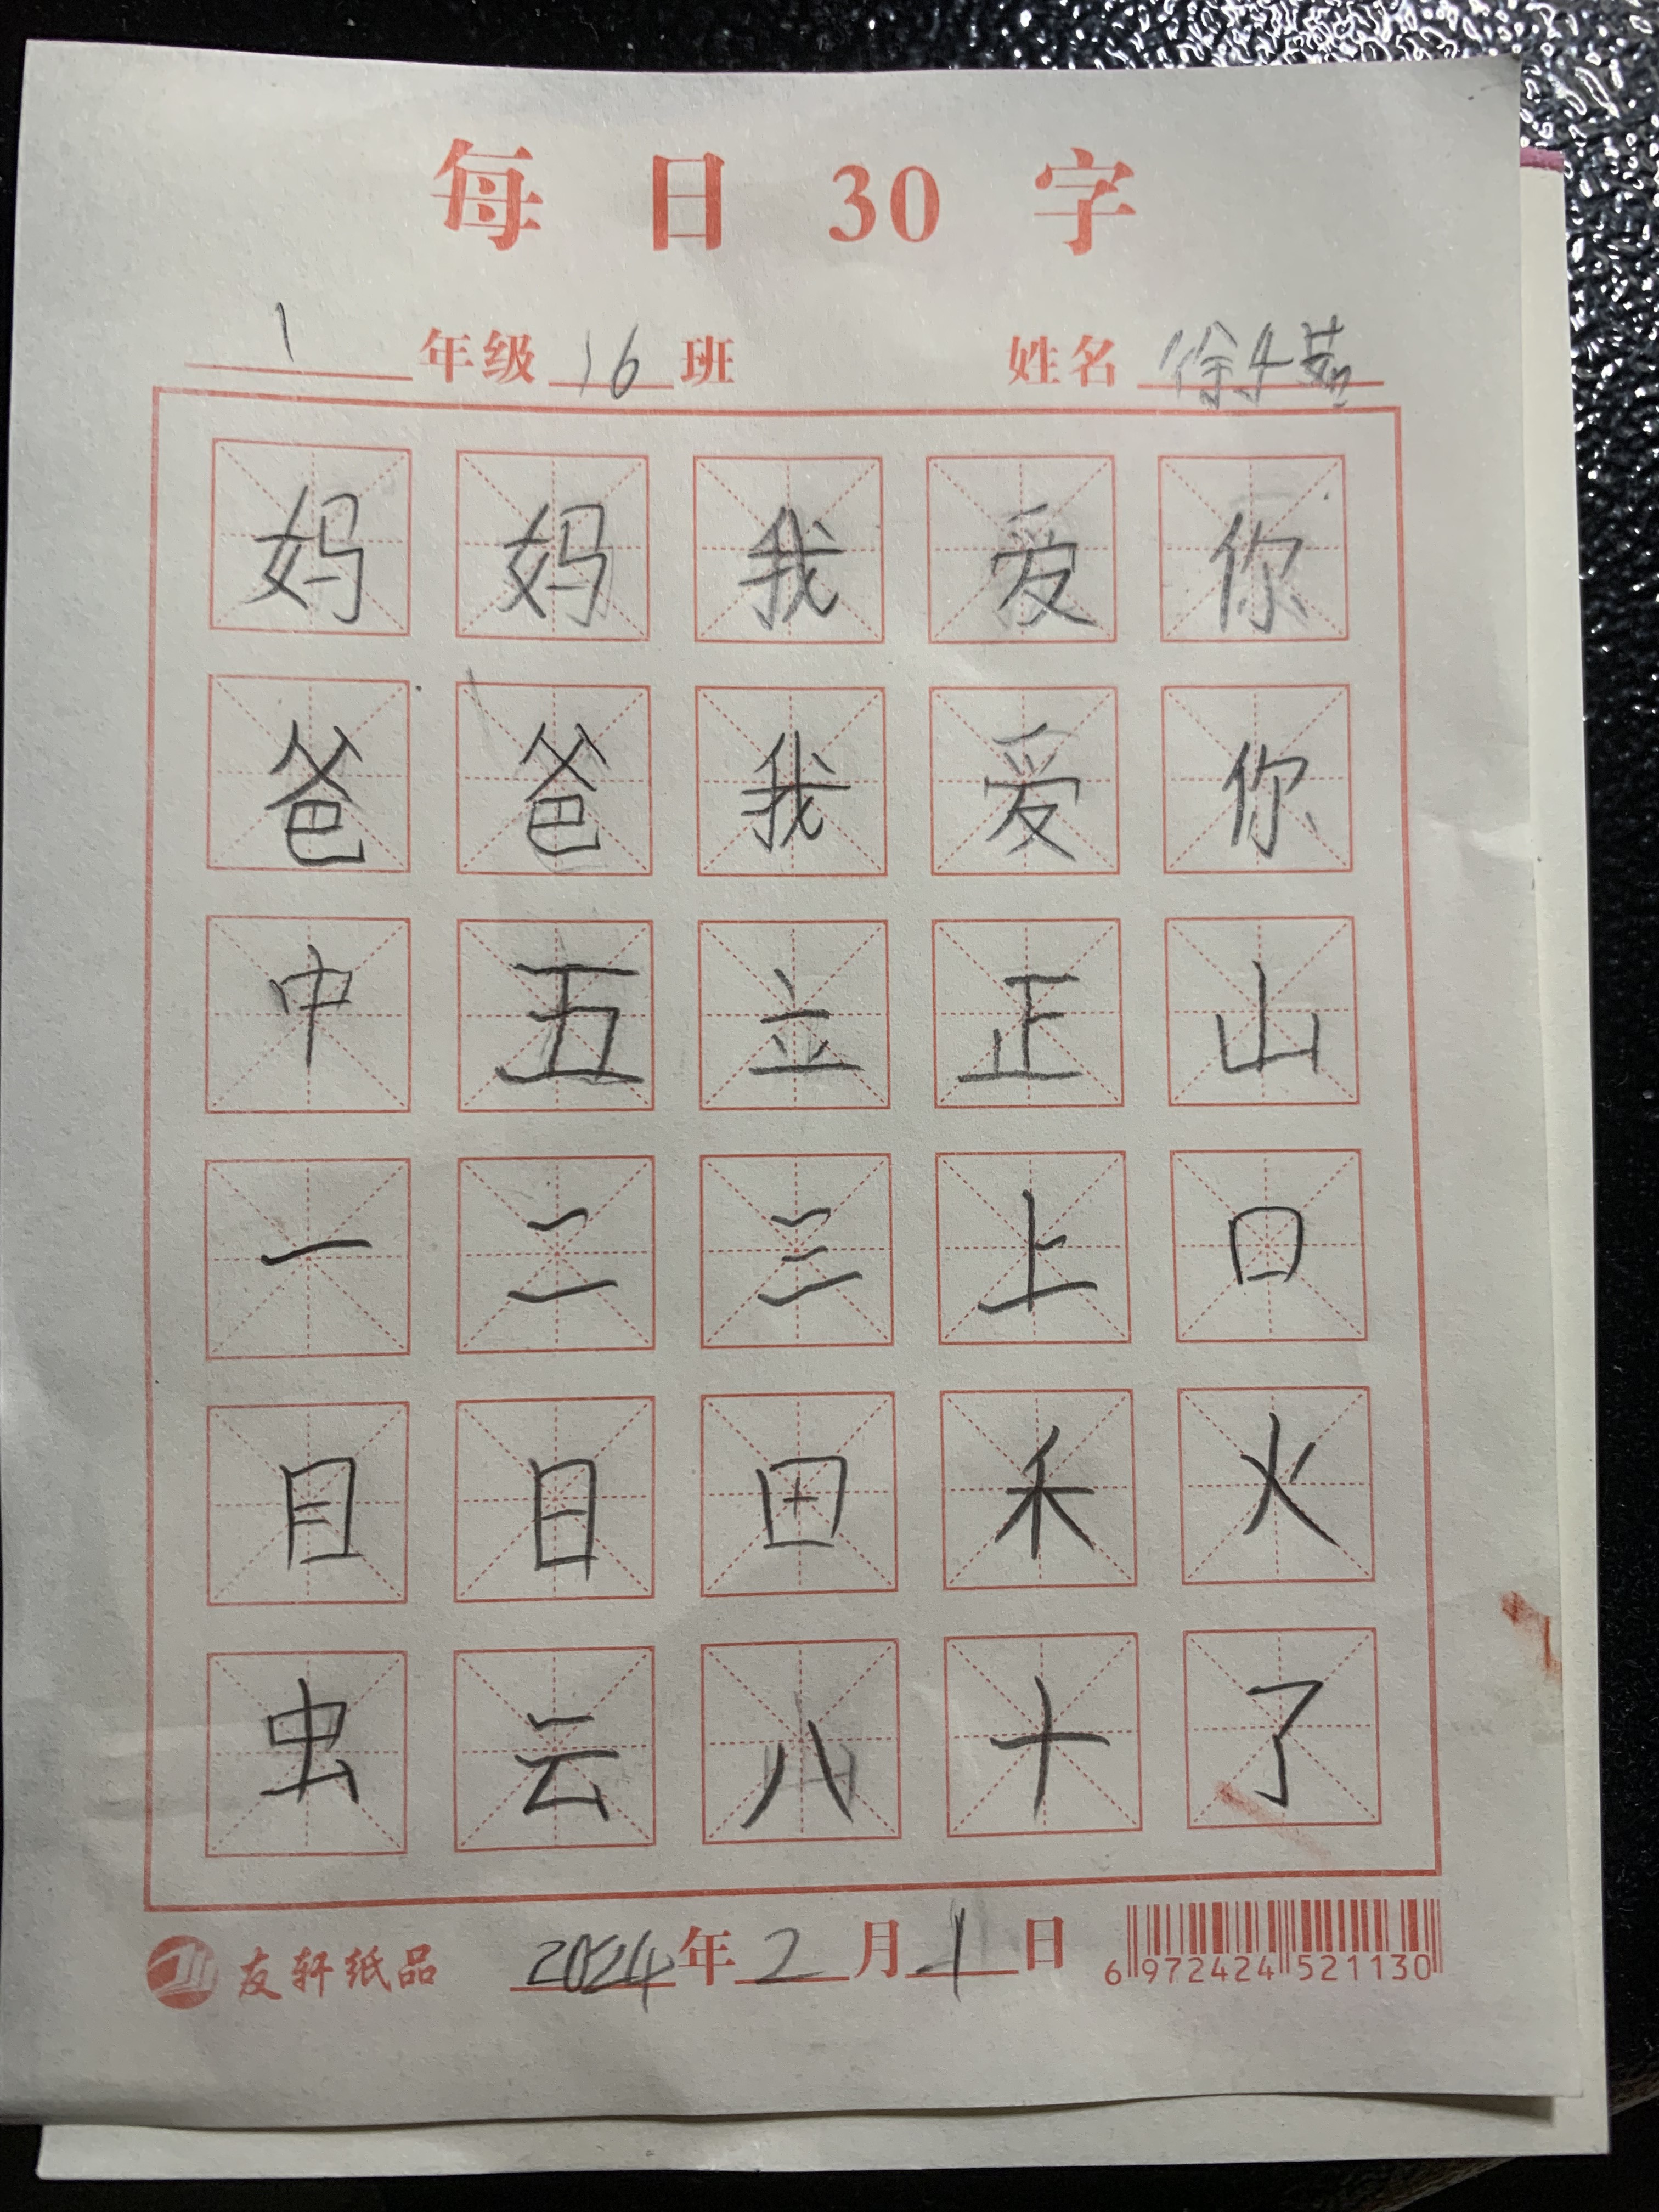 每日30字
1年级16班 姓名徐子茹
妈妈我爱你
爸爸我爱你
中五立正山
一二三上口
目日田禾火
虫云八十了
友轩纸品 2024年2月1日 6 972424 521130